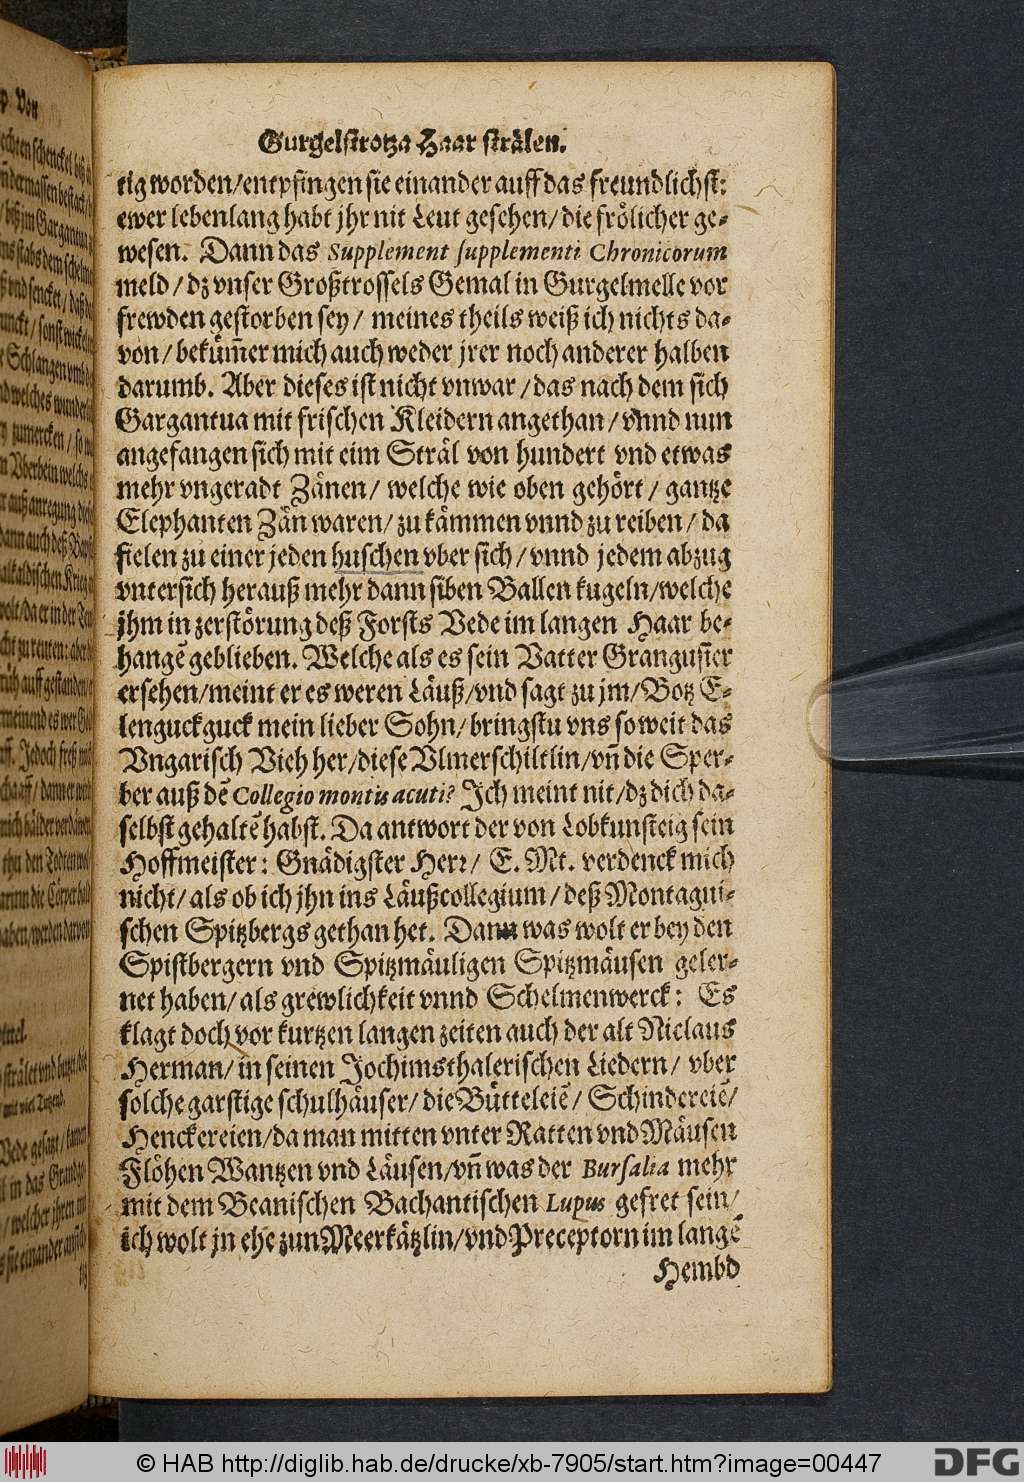 Gurgelstrotza Haar strälen.
tig worden/entpfingen sie einander auff das freundlichst:
ewer lebenlang habt jhr nit Leut gesehen/die frölicher ge-
wesen. Dann das Supplement supplementi Chronicorum
meld/dz vnser Großtrossels Gemal in Gurgelmelle vor
frewden gestorben sey/ meines theils weiß ich nichts da-
von/beküm̃er mich auch weder jrer noch anderer halben
darumb. Aber dieses ist nicht vnwar/das nach dem sich
Gargantua mit frischen Kleidern angethan/vnnd nun
angefangen sich mit eim Sträl von hundert vnd etwas
mehr vngeradt Zänen/ welche wie oben gehört/ gantze
Elephanten Zän waren/zu kämmen vnnd zu reiben/da
fielen zu einer jeden huschen vber sich/vnnd jedem abzug
vntersich herauß mehr dann siben Ballen kugeln/welche
jhm in zerstörung deß Forsts Vede im langen Haar be-
hangẽ geblieben. Welche als es sein Vatter Grangusier
ersehen/meint er es weren Läuß/vnd sagt zu jm/Botz E-
lenguckguck mein lieber Sohn/bringstu vns so weit das
Vngarisch Vieh her/diese Vlmerschiltlin/vñ die Sper-
ber auß dẽ Collegio montis acuti? Ich meint nit/dz dich da-
selbst gehaltẽ habst. Da antwort der von Lobkunsteig sein
Hoffmeister: Gnädigster Herr/ E. Mt. verdenck mich
nicht/als ob ich jhn ins Läußcollegium/deß Montagui-
schen Spitzbergs gethan het. Dann was wolt er bey den
Spistbergern vnd Spitzmäuligen Spitzmäusen geler-
net haben/als grewlichkeit vnnd Schelmenwerck: Es
klagt doch vor kurtzen langen zeiten auch der alt Niclaus
Herman/in seinen Jochimsthalerischen Liedern/ vber
solche garstige schulhäuser/die Bütteleiẽ/ Schindereiẽ/
Henckereien/da man mitten vnter Ratten vnd Mäusen
Flöhen Wantzen vnd Läusen/vñ was der Bursalia mehr
mit dem Beanischen Bachantischen Lupus gefret sein/
ich wolt jn ehe zun Meerkätzlin/vnd Preceptorn im langẽ
Hembd
© HAB http://diglib.hab.de/drucke/xb-7905/start.htm?image=00447
DFG